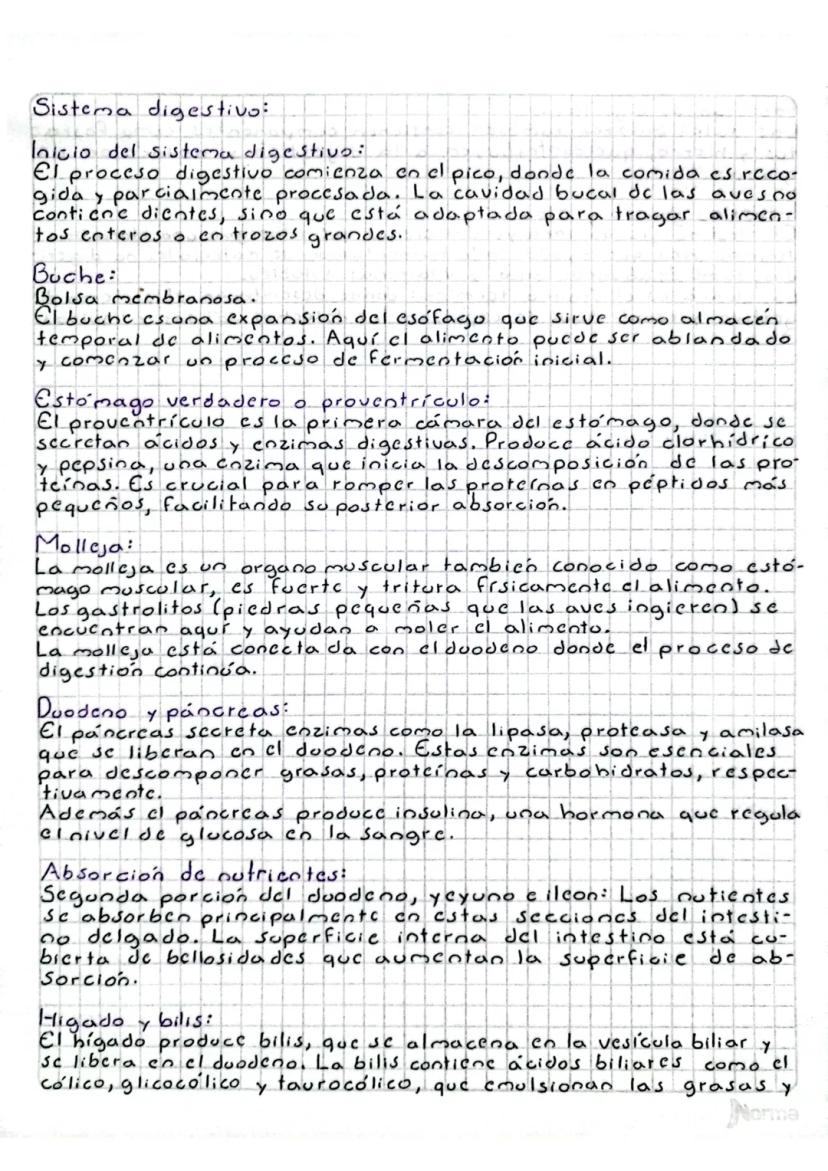 Sistema digestivo:
Inicio del sistema digestivo:
El proceso digestivo comienza en el pico, donde la comida es reco-
gida y parcialmente procesada. La cavidad bucal de las aves no
contiene dientes, sino que está adaptada para tragar alimen-
tos enteros o en trozos grandes.
Buche:
Bolsa membranosa.
El buche es una expansión del esófago que sirve como almacén
temporal de alimentos. Aquí el alimento puede ser ablandado
y comenzar un proceso de fermentación inicial.
Estómago verdadero o proventrículo:
El proventrículo es la primera cámara del estómago, donde se
secretan ácidos y enzimas digestivas. Produce ácido clorhídrico
y pepsina, una enzima que inicia la descomposición de las pro-
teínas. Es crucial para romper las proteínas en péptidos más
pequeños, facilitando su posterior absorción.
Molleja:
La molleja es un organo muscular también conocido como estó-
mago muscular, es fuerte y tritura físicamente el alimento.
Los gastrolitos (piedras pequeñas que las aves ingieren) se
encuentran aquí y ayudan a moler el alimento.
La molleja está conectada con el duodeno donde el proceso de
digestión continúa.
Duodeno y páncreas:
El páncreas secreta enzimas como la lipasa, proteasa y amilasa
que se liberan en el duodeno. Estas enzimas son esenciales
para descomponer grasas, proteínas y carbohidratos, respec-
tivamente.
Además el páncreas produce insulina, una hormona que regula
el nivel de glucosa en la sangre.
Absorción de nutrientes:
Segunda porción del duodeno, yeyuno e ileon: Los nutientes
se absorben principalmente en estas secciones del intesti-
no delgado. La superficie interna del intestino está cu-
bierta de bellosidades que aumentan la superficie de ab-
sorción.
Higado y bilis:
El hígado produce bilis, que se almacena en la vesícula biliar y
se libera en el duodeno. La bilis contiene ácidos biliares como el
cólico, glicocólico y taurocólico, que emulsionan las grasas y
Norma